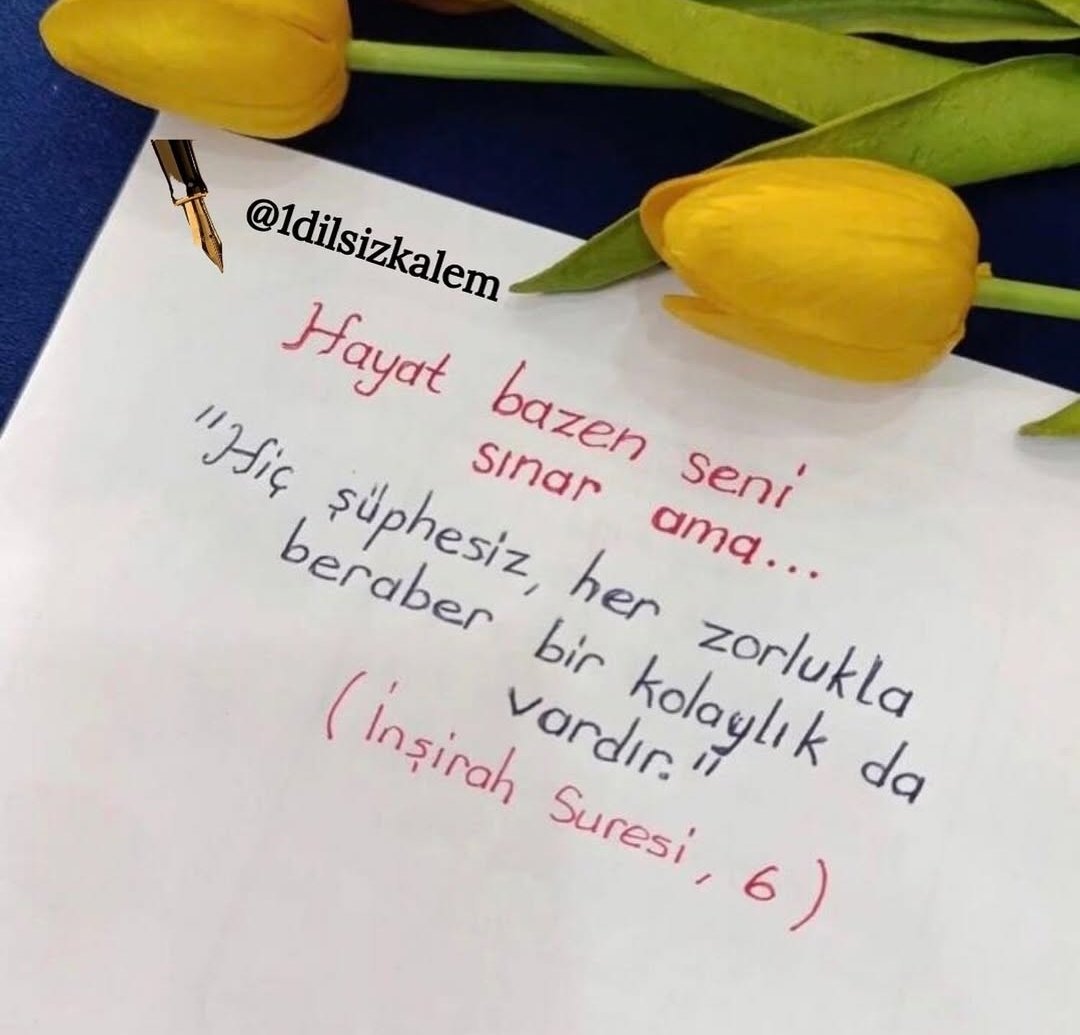 @1dilsizkalem
Hayat bazen seni
sınar ama...
"Hiç şüphesiz, her zorlukla
beraber bir kolaylık da
vardır."
(İnşirah Suresi, 6)